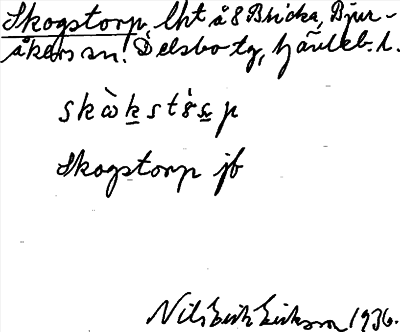 Skogstorp, lht å 8 Bricka, Bjur-
åkers sn. Delsbo tg, Gävleb. l.
skὼkstȯ̀rp
Skogstorp jb
Nils Erik Eriksson 1936.